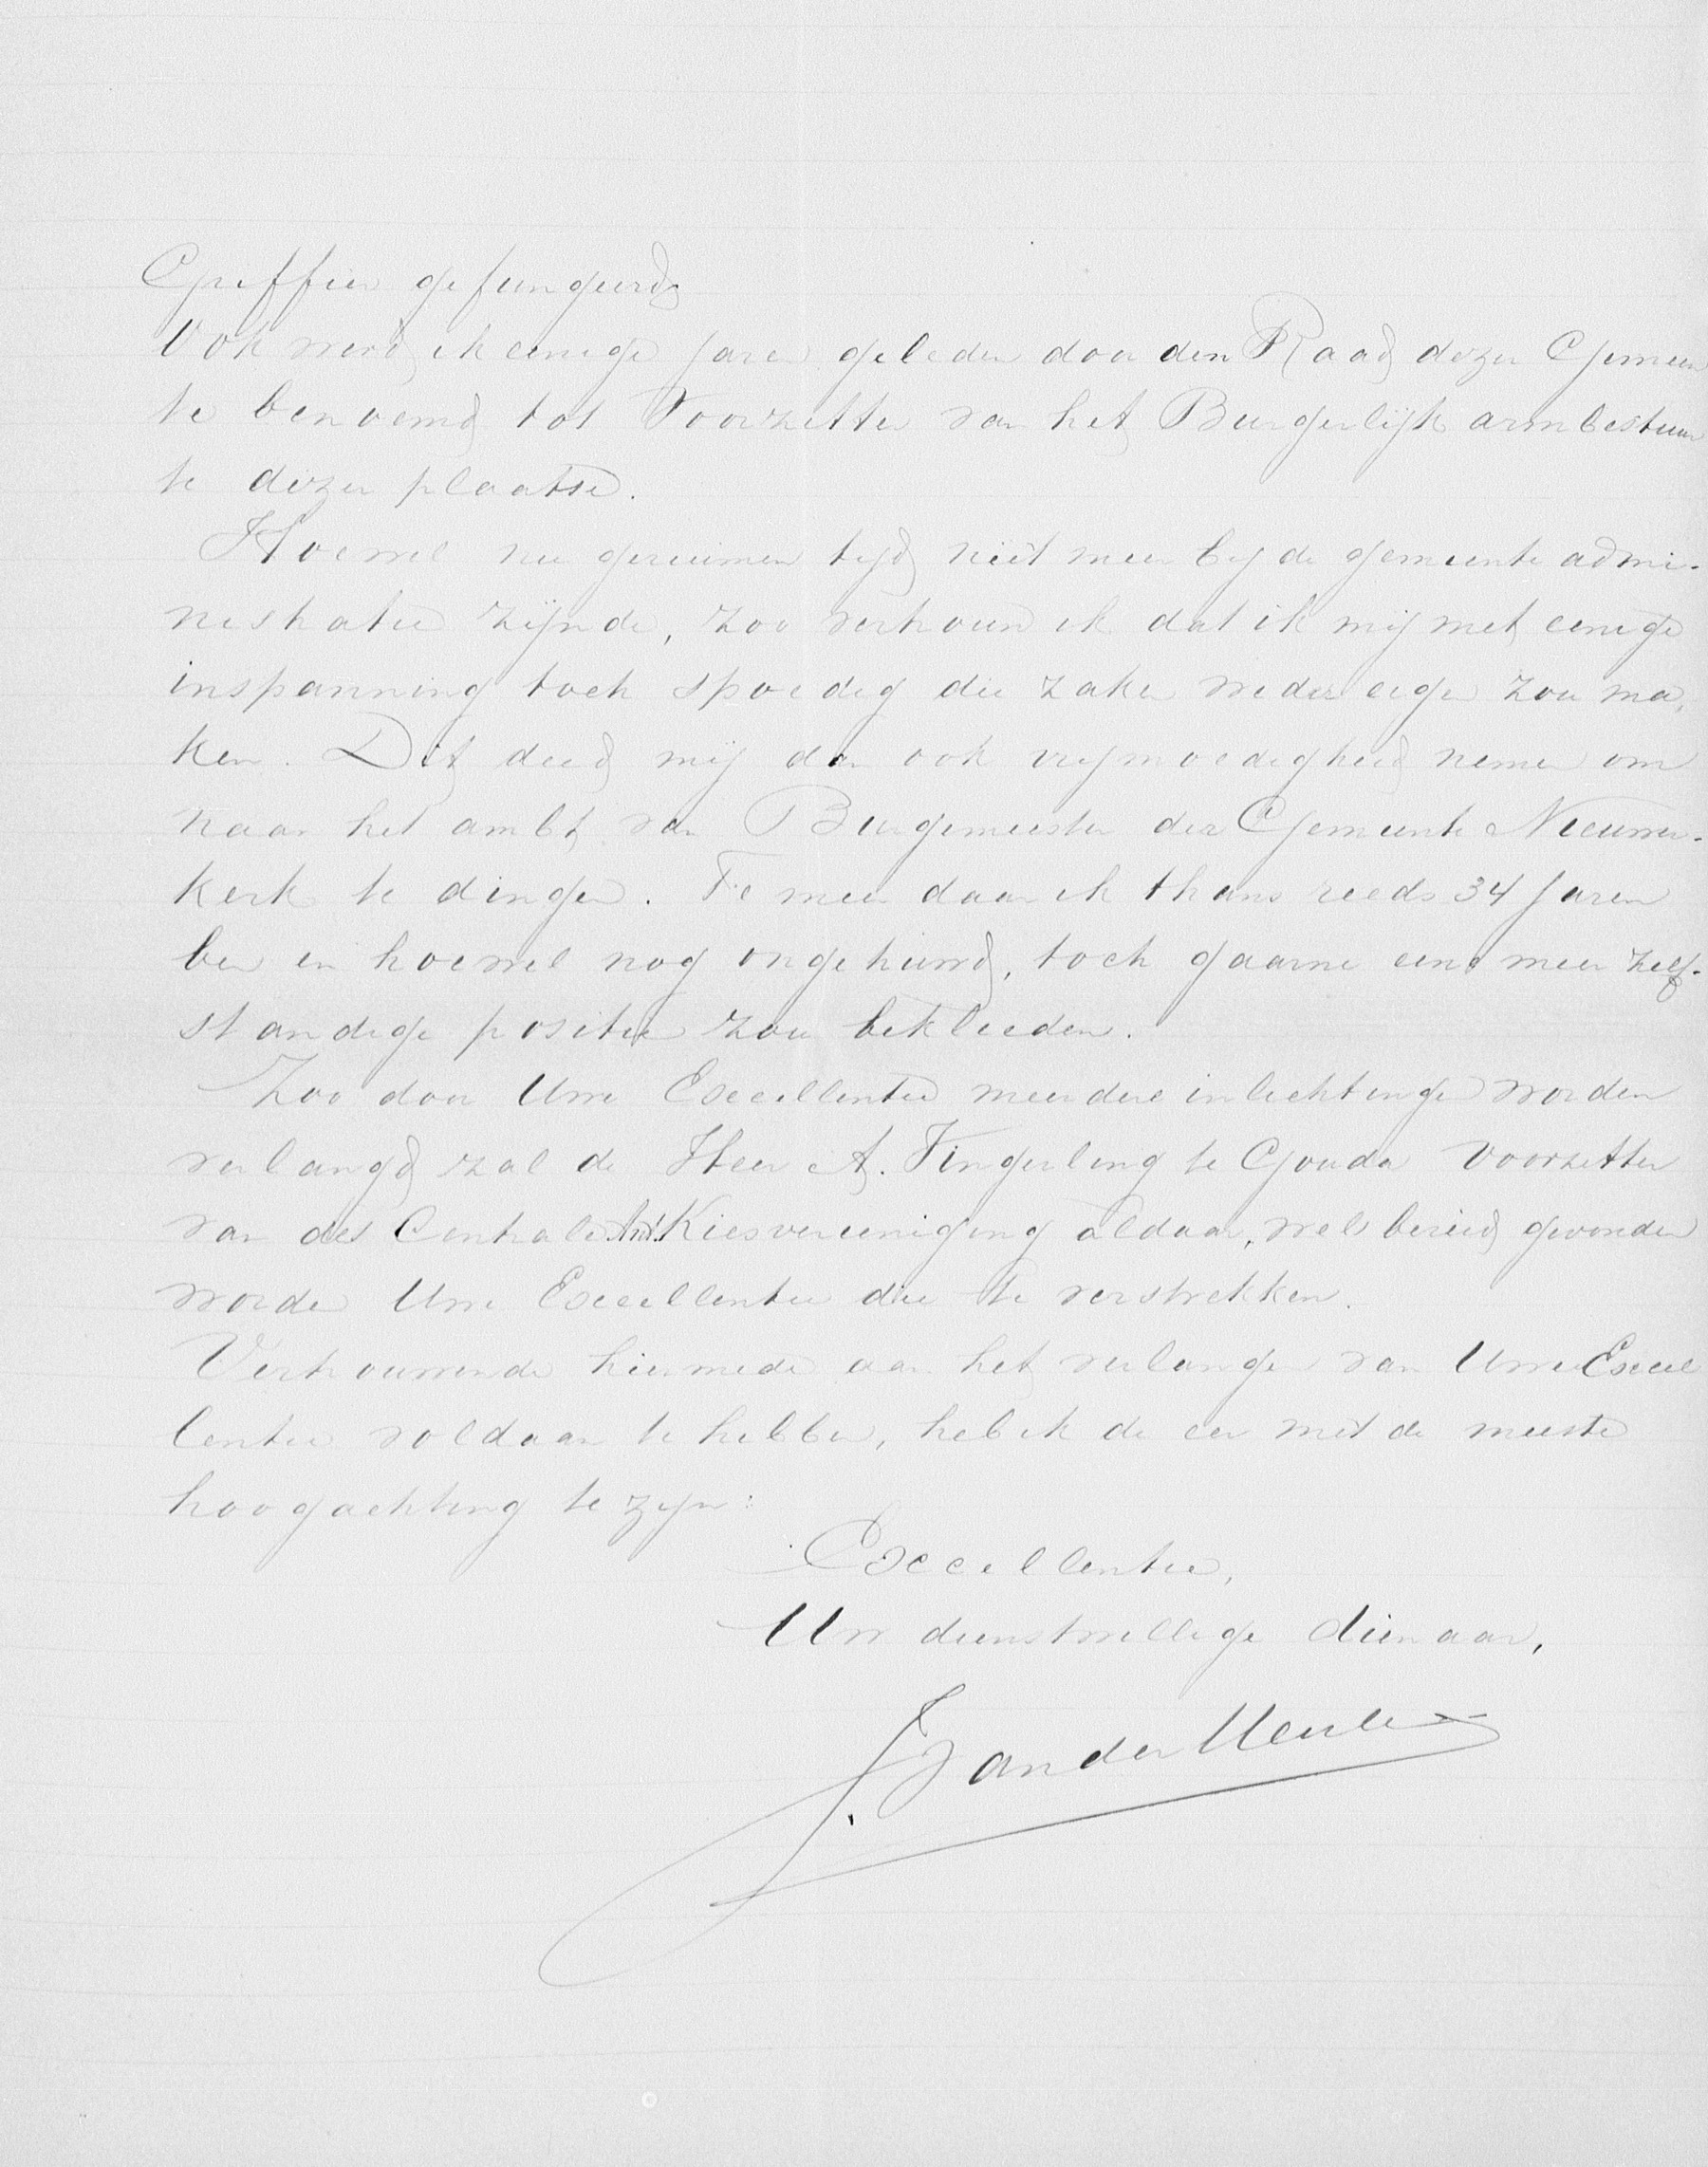 Griffier gefungeerd.
Ook werd ik eenige jaren geleden door den Raad dezer Gemeen
te benoemd tot Voorzetter van het Burgerlijk armbestuur
te dezer plaatse.
Hoewel nu geruimen tijd niet meer bij de gemeente admi-
nistratie zijnde, zoo vertrouw ik dat ik mij met eenige
inspanning toch spoedig die zaken weder eigen zou ma-
ken. Dit deed mij dan ook vrijmoedigheid nemen om
naar het ambt van Burgemeester der Gemeente Nieuwer-
kerk te dingen. Te meer daar ik thans reeds 34 jaren
ben en hoewel nog ongehuwd, toch gaarne eene meer zelf-
standige positie zou bekleeden.
Zoo door Uwe Excellentie meerdere inlichtingen worden
verlangd zal de Heer A. Vingerling te Gouda voorzitter
van de Centrale Ant. Kiesvereeniging aldaar, wel bereid gevonden
worden Uwe Excellentie die te verstrekken.
Vertrouwende hiermede aan het verlangen van Uwe Excel
lentie voldaan te hebben, heb ik de eer met de meeste
hoogachting te zijn:
Excellentie,
Uw dienstwillige dienaar,
J. van der Meulen